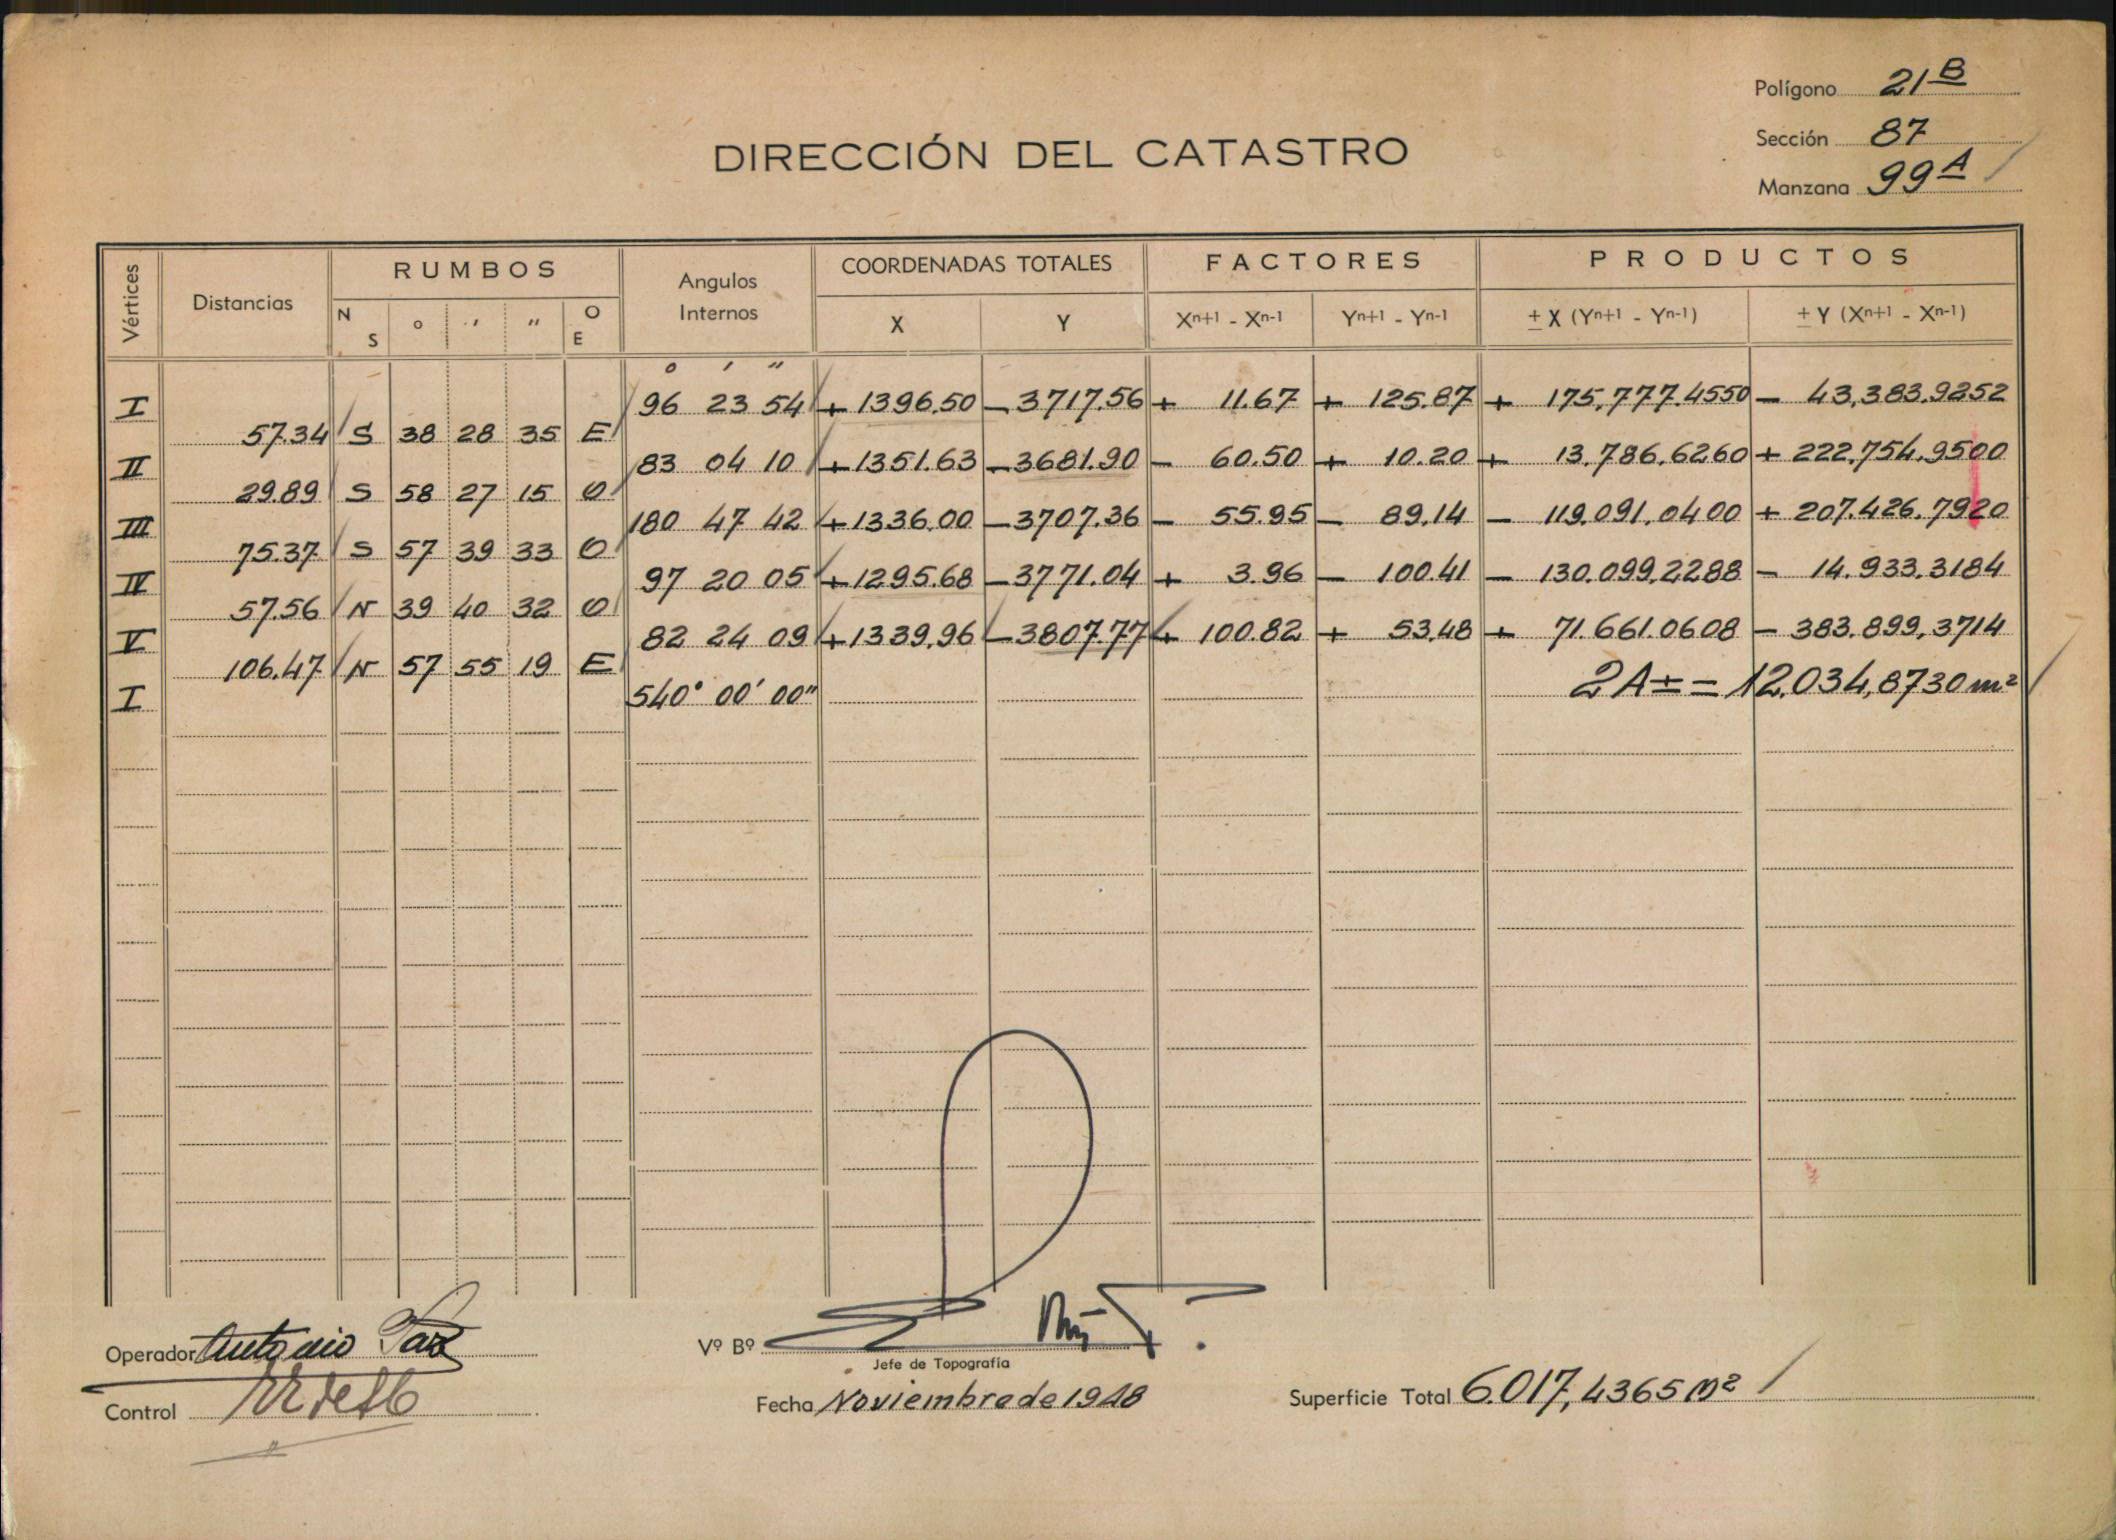 Polígono 21 B
Sección 87
Manzana 99 A
DIRECCIÓN DEL CATASTRO
Vértices Distancias RUMBOS Angulos Internos COORDENADAS TOTALES FACTORES PRODUCTOS
N S ° ' " O E X Y Xn+1 - Xn-1 Yn+1 - Yn-1 ± X (Yn+1 - Yn-1) ± Y (Xn+1 - Xn-1)
° ' "
I 96 23 54 + 1396.50 - 3717.56 + 11.67 + 125.87 + 175.777.4550 - 43.383.9252
57.34 S 38 28 35 E
II 83 04 10 + 1351.63 - 3681.90 - 60.50 + 10.20 + 13.786.6260 + 222.754.9500
29.89 S 58 27 15 O
III 180 47 42 + 1336.00 - 3707.36 - 55.95 - 89.14 - 119.091.0400 + 207.426.7920
75.37 S 57 39 33 O
IV 97 20 05 + 1295.68 - 3771.04 + 3.96 - 100.41 - 130.099.2288 - 14.933.3184
57.56 N 39 40 32 O
V 82 24 09 + 1339.96 - 3807.77 + 100.82 + 53.48 + 71.661.0608 - 383.899.3714
106.47 N 57 55 19 E
I 540° 00' 00" 2A± = 12.034,8730 m²
Operador Antonio Paz
Vº Bº
Jefe de Topografía
Control
Fecha Noviembre de 1948
Superficie Total 6.017,4365 m²